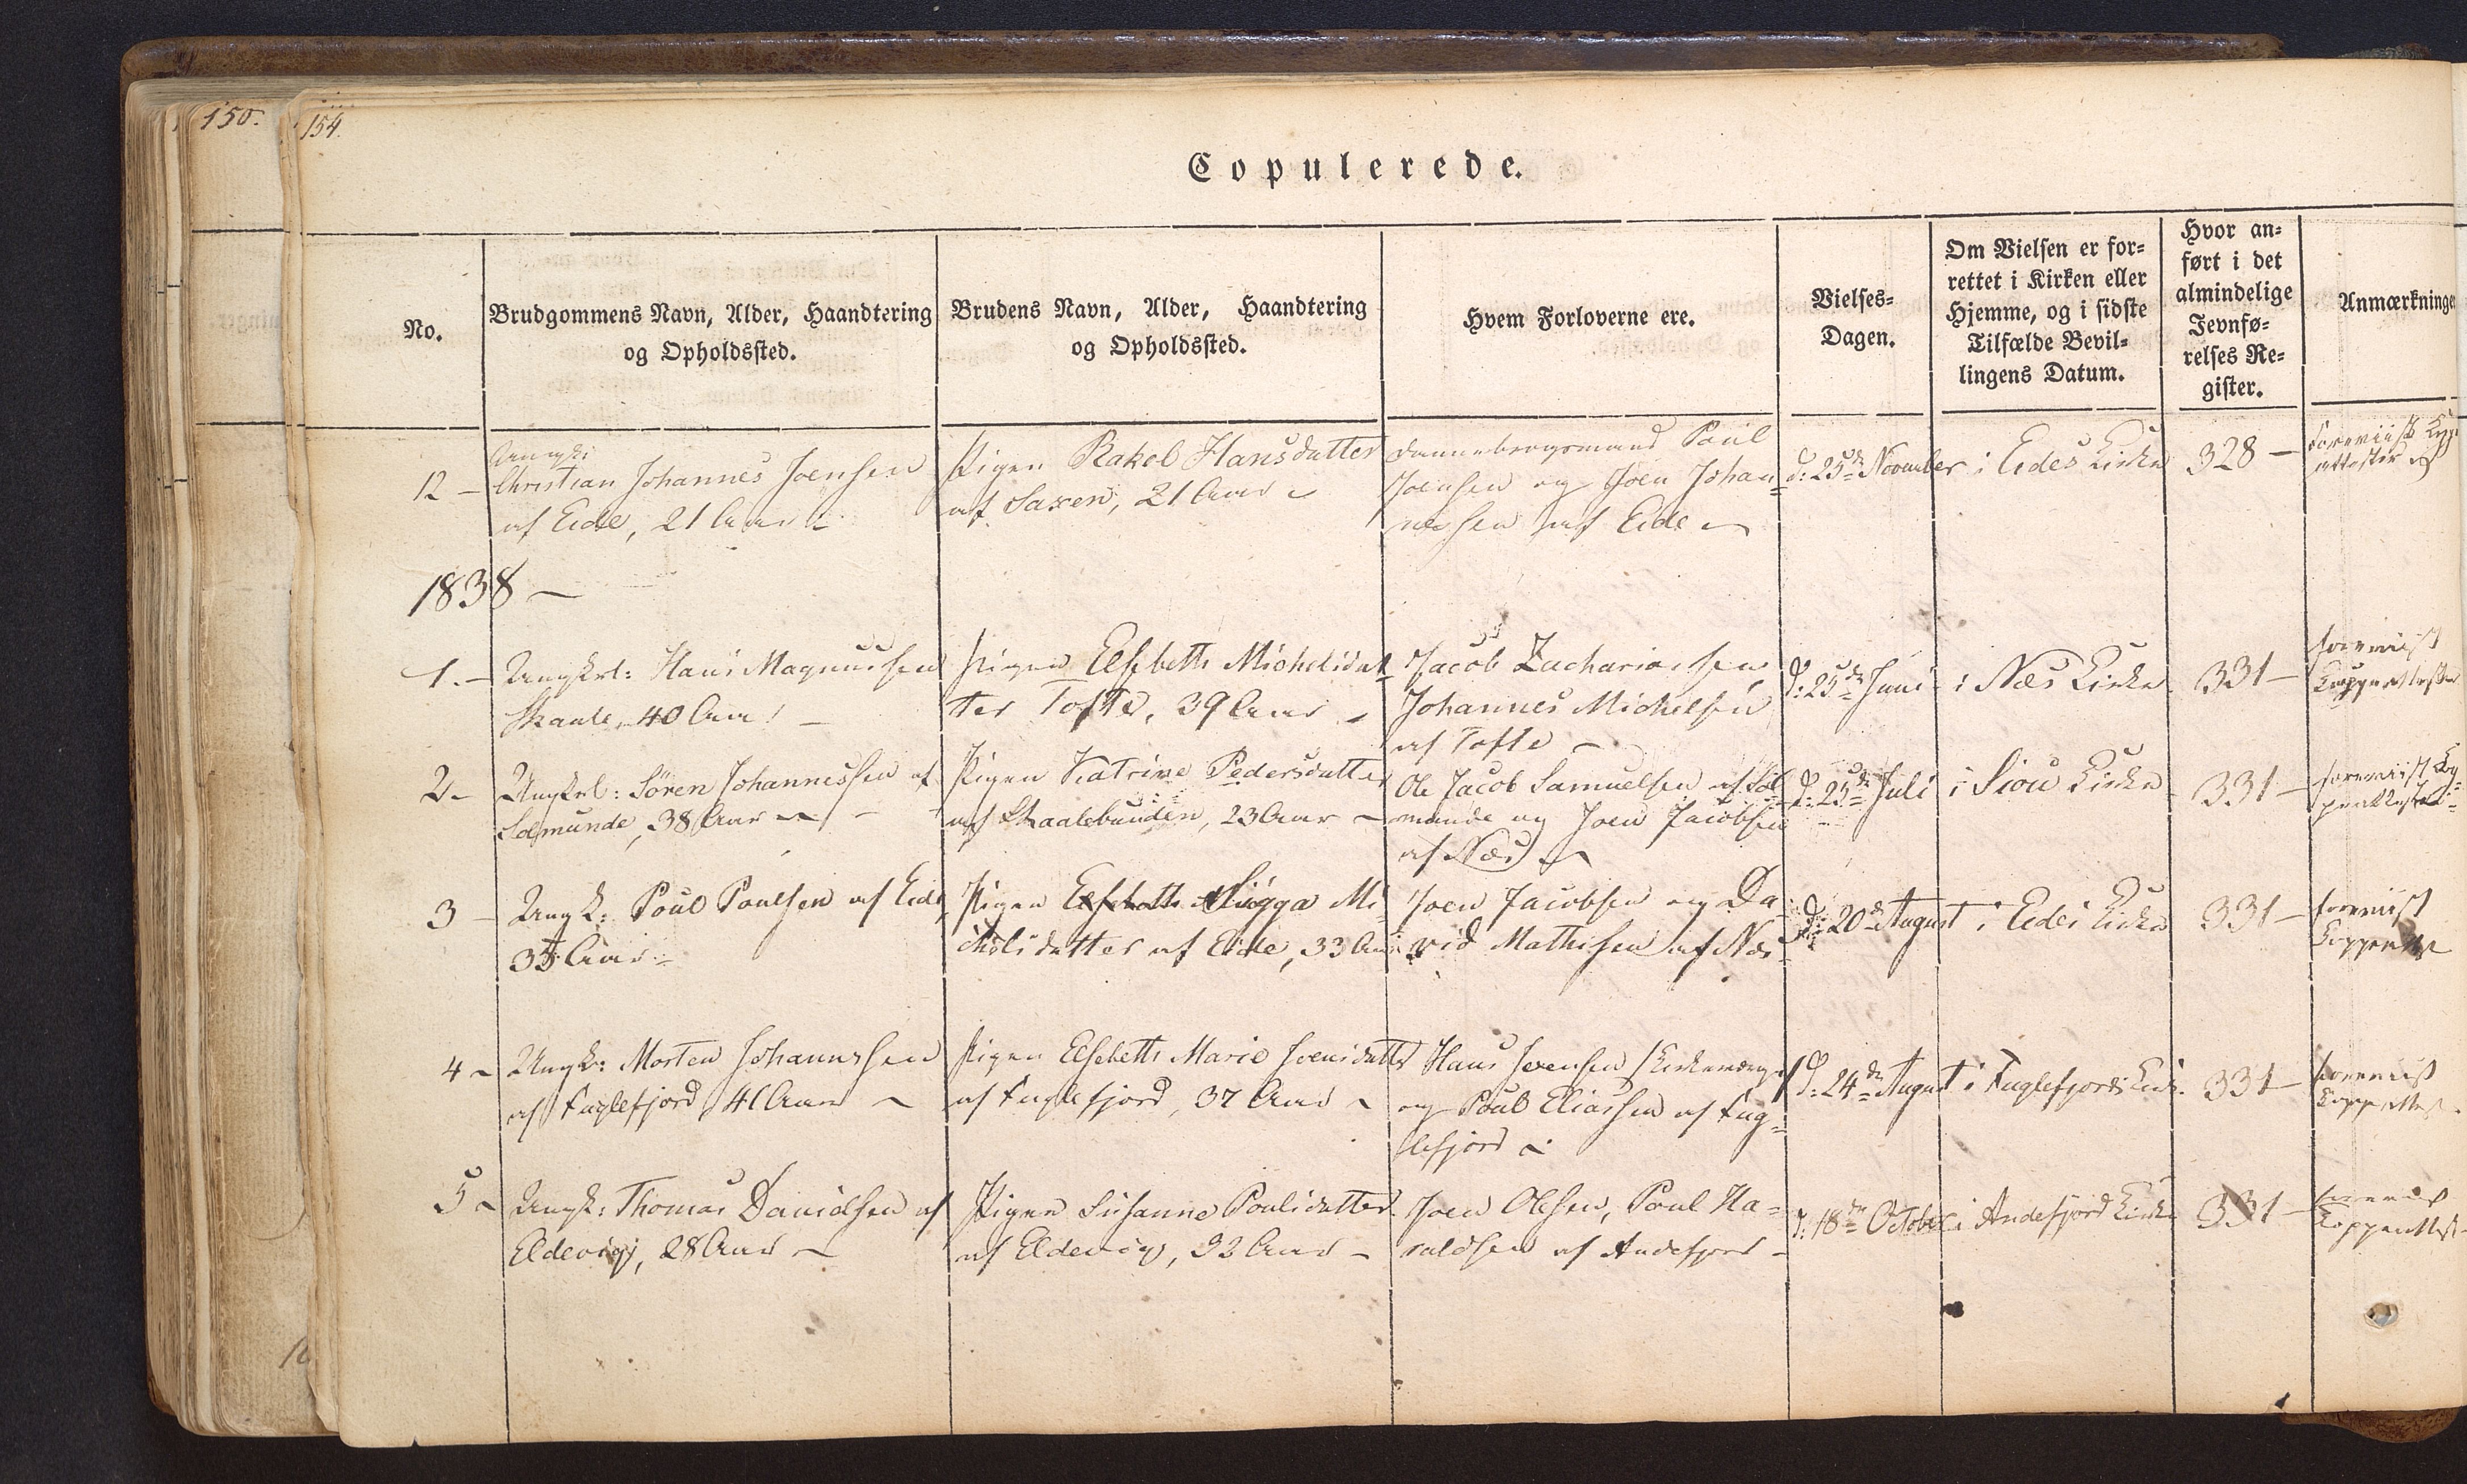 150.
154.
Copulerede.
No.
Brudgommens Navn, Alder, Haandtering
og Opholdssted.
Brudens Navn, Alder, Haandtering
og Opholdssted.
Hvem Forloverne ere.
Vielses-
Dagen.
Om Vielsen er for-
rettet i Kirken eller
Hjemme, og i sidste
Tilfælde Bevil-
lingens Datum.
Hvor an-
ført i det
almindelige
Jevnfø-
relses Re-
gister.
Anmærkninge
12 -
Ungk:
Christian Johannes Joensen
af Eide, 21 Aar
Pigen Rakel Hansdatter
af Saxen, 21 Aar
Dannebrogsmand Poul
Joensen og Joen Johan=
nesen af Eide
d: 25de November
i Eides Kirke
328 -
foreviist Kop
attester
1838 -
1. -
Ungkrl: Hans Magnussen
Skaale, 40 Aar -
Pigen Elsebeth Michelsdat
ter Tofte, 39 Aar -
Jacob Zachariasen
Johannes Michelsen
af Tofte -
d: 25de Juni
i Næs Kirke
331 -
foreviist
Koppeattester
2 -
Ungkrl: Søren Johannessen af
Solmunde, 38 Aar -
Pigen Katrine Pedersdatter
af Skaalebunden, 23 Aar -
Ole Jacob Samuelsen af Sol
munde og Joen Jacobsen
af Næs
d: 25de Juli
i Siou Kirke
331 -
foreviist Kop=
peattester
3 -
Ungk: Poul Poulsen af Eide
35 Aar
Pigen Elsebeth Sigga Mi
chelsdatter af Eide, 33 Aar
Joen Jacobsen og Da
vid Mathisen af Næs
d: 20de August
i Eides Kirke
331 -
foreviist
Koppeatt
4 -
Ungk: Morten Johannesen
af Fuglefjord, 41 Aar -
Pigen Elsebeth Marie Joensdatter
af Fuglefjord, 37 Aar -
Hans Joensen / Kirkeværge /
og Poul Eliassen af Fug=
lefjord
d: 24de August
i Fuglefjords Kirk:
331 -
foreviist
Koppeattest
5 -
Ungk: Thomas Davidsen af
Eldevig, 28 Aar -
Pigen Susanne Poulsdatter
af Eldevig, 23 Aar -
Joen Olesen, Poul Ha=
raldsen af Andefjord -
d: 18de October
i Andefjord Kirke
331 -
foreviist
Koppeattest